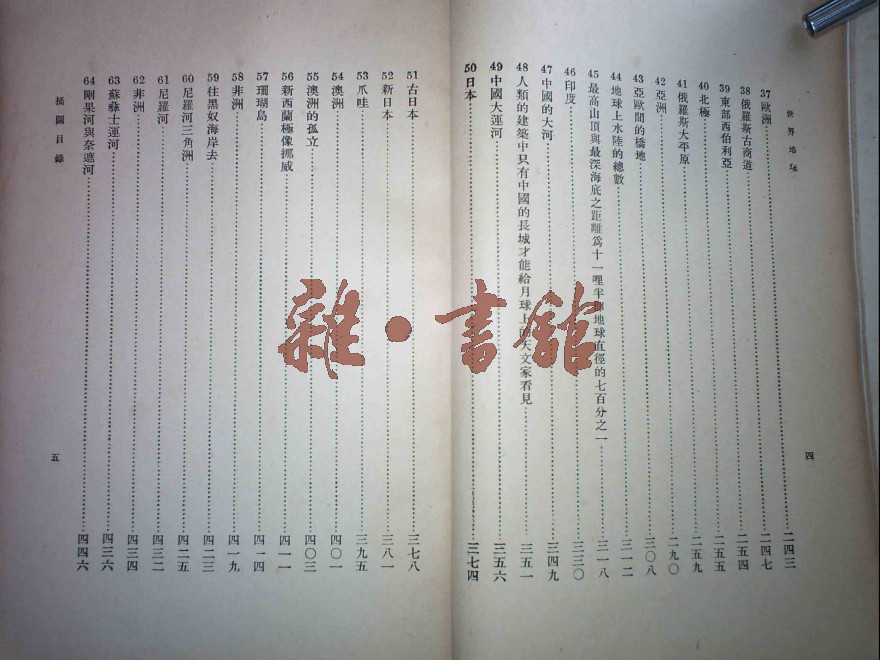 世界地
37 歐洲 二四三
38 俄羅斯古商道 二四七
39 東部西伯利亞 二五四
40 北極 二五五
41 俄羅斯大平原 二五九
42 亞洲 二九〇
43 亞歐間的橋地 三〇八
44 地球上水陸的總數 三一二
45 最高山頂與最深海底之距離爲十一哩半地球直徑的七百分之一 三一八
46 印度 三三〇
47 中國的大河 三四九
48 人類的建築中只有中國的長城才能給月球上的天文家看見 三五一
49 中國大運河 三五六
50 日本 三七四
四
51 古日本 三七八
52 新日本 三八一
53 爪哇 三九五
54 澳洲 四〇一
55 澳洲的孤立 四〇三
56 新西蘭極像挪威 四一一
57 珊瑚島 四一四
58 非洲 四一九
59 往黑奴海岸去 四二三
60 尼羅河三角洲 四二五
61 尼羅河 四三二
62 非洲 四三四
63 蘇彝士運河 四三六
64 剛果河與奈遮河 四四六
插圖目錄
五
雜·書館